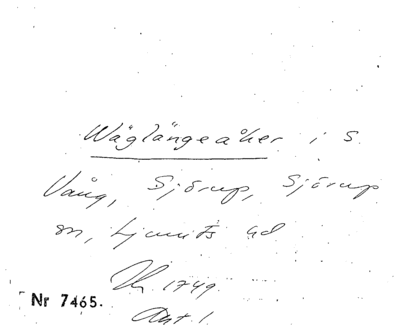 Wäglängeåker i S.
Vång, Sjörup, Sjörup
sn, Ljunits hd
Nr 7465.
1749.
Akt 1.